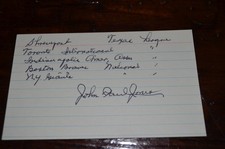 Shreveport Texas League
Toronto International "
Indianapolis Amer. Assn "
Boston Braves National "
NY Giants "
John Paul Jones